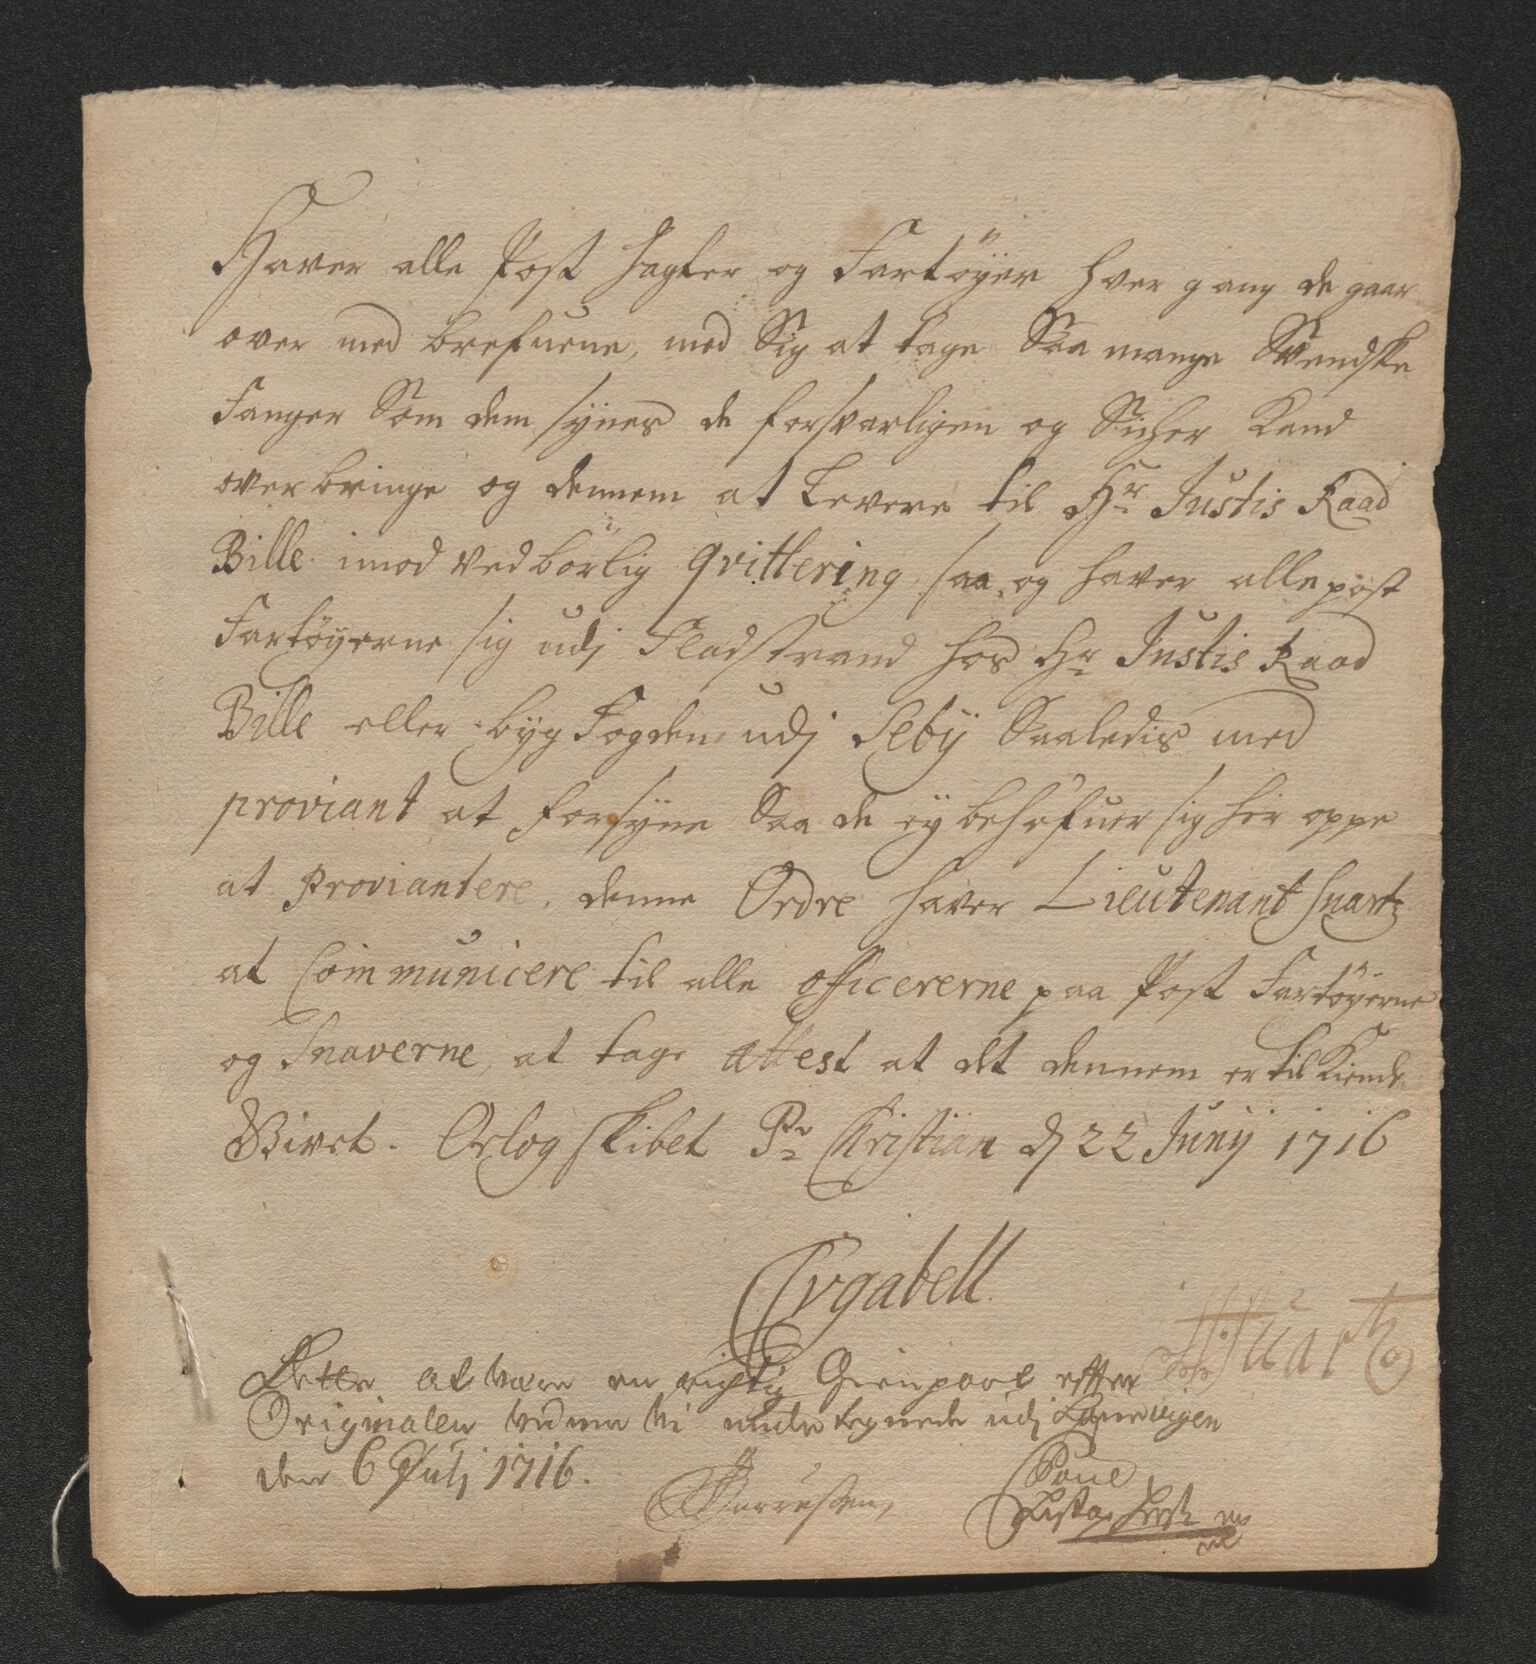 Hafver alle Post Jagter og Fartøyer hver gang de gaar
over med brefuene, med Sig at tage Saa mange Svendske
Fanger Som dem synes de forsvarligen og Sicher Kand
overbringe og dennem at Levere til Hr Justis Raad
Bille imod vedbörlig qvittering, saa og haver alle post
Fartöyerne sig udj Fladstrand hos Hr Justis Raad
Bille eller byg Fogden udj Seby Saaledis med
proviant at forsyne Saa de ey behöfuer sig her oppe
at Proviantere, denne Ordre haver Lieutenant Suartz
at Communicere til alle officererne paa Post Fartöyerne
og Snaverne, at tage Attest at det dennem er til Kiende
Givet. Orlog skibet Pr Christian d 22 Junij 1716
CVGabell.
Dette at være en rigtig Gienpart efter
Originalen vidner Vi underteignede udj
den 6 Julj 1716.